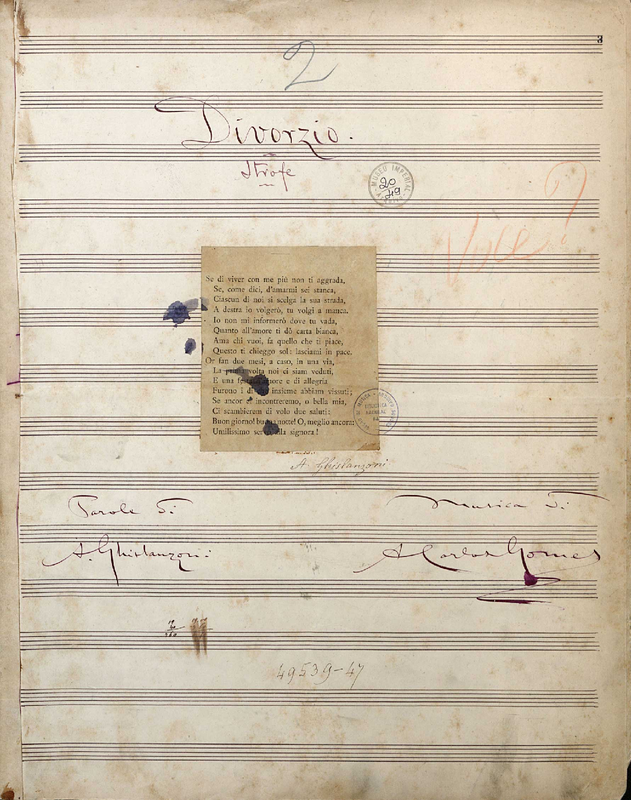 3
2
Divorzio.
Strofe
MUSEO IMPERIAL
20
49
Voce?
Se di viver con me più non ti aggrada,
Se, come dici, d'amarmi sei stanca,
Ciascun di noi si scelga la sua strada,
A destra io volgerò, tu volgi a manca.
Io non mi informerò dove tu vada,
Quanto all'amore ti dò carta bianca,
Ama chi vuoi, fa quello che ti piace,
Questo ti chieggo sol: lasciami in pace.
Or fan due mesi, a caso, in una via,
La volta noi ci siam veduti,
E una amore e di allegria
Furono i insieme abbiam vissuti;
Se ancor ci incontreremo, o bella mia,
Ci scambierem di volo due saluti:
Buon giorno! notte! O, meglio ancora:
Umilissimo signora!
A. Ghislanzoni
Parole di Musica di
A. Ghislanzoni A Carlos Gomes
49539-47